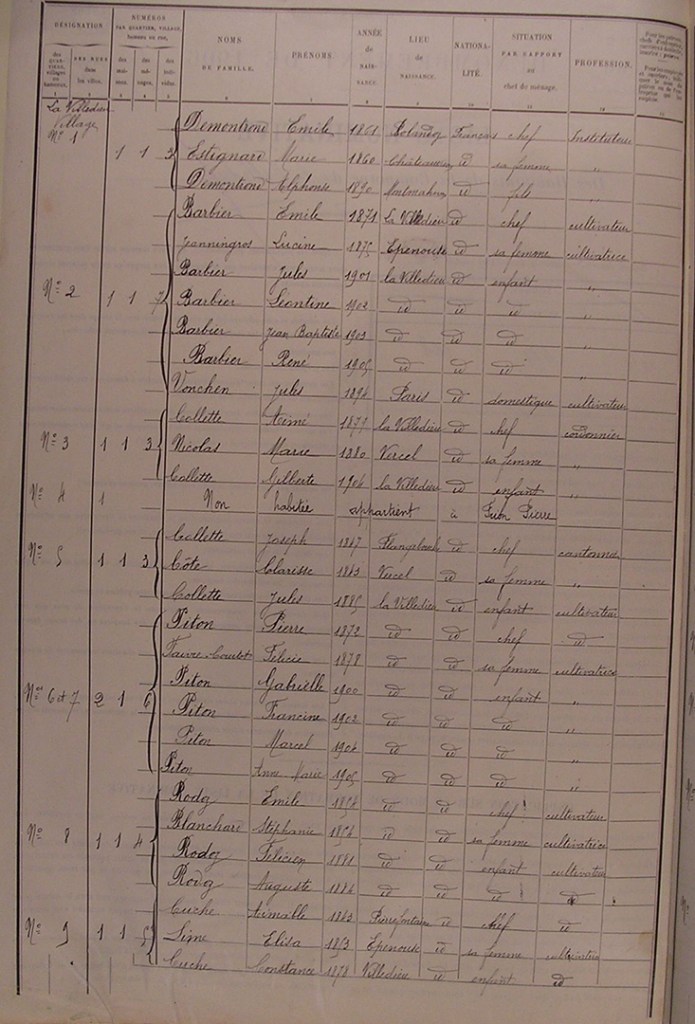 DÉSIGNATION NUMÉROS PAR QUARTIER, VILLAGE, NOMS DE FAMILLE. PRÉNOMS. ANNÉE de NAISSANCE. LIEU de NAISSANCE. NATIONALITÉ. SITUATION PAR RAPPORT au chef de ménage. PROFESSION.
La Villedieu
Village
Nº 1
1 1 3 Demontrond Emile 1861 Français chef Instituteur
Estignard Marie 1860 id sa femme "
Demontrond Alphonse 1890 id fils "
Barbier Emile 1871 La Villedieu id chef cultivateur
Jeanningros Lucine 1875 Epenouse id sa femme cultivatrice
Barbier Jules 1901 la Villedieu id enfant "
Nº 2 1 1 7 Barbier Léontine 1902 id id id "
Barbier Jean Baptiste 1903 id id id "
Barbier René 1905 id id id "
Vonchen Jules 1894 Paris id domestique cultivateur
Collette Aimé 1877 la Villedieu id chef cordonnier
Nº 3 1 1 3 Nicolas Marie 1880 Vercel id sa femme "
Collette Gilberte 1904 la Villedieu id enfant "
Nº 4 1 Non habitée appartient à Pierre
Collette Joseph 1847 id chef cantonnier
Nº 5 1 1 3 Côte Clarisse 1843 Vercel id sa femme "
Collette Jules 1885 la Villedieu id enfant cultivateur
Piton Pierre 1872 id id chef id
Faivre-Courtot Félicie 1878 id id sa femme cultivatrice
Piton Gabrielle 1900 id id enfant "
Nos 6 et 7 2 1 6 Piton Francine 1902 id id id "
Piton Marcel 1904 id id id "
Piton Anne Marie 1905 id id id "
Rodoz Emile 1854 id id chef cultivateur
Nº 8 1 1 4 Blanchard Stéphanie 1854 id id sa femme cultivatrice
Rodoz Félicien 1881 id id enfant cultivateur
Rodoz Auguste 1884 id id id id
Cuche Aimable 1843 Pierrefontaine id chef id
Nº 9 1 1 5 Lime Elisa 1853 Epenouse id sa femme cultivatrice
Cuche Constance 1878 Villedieu id enfant id